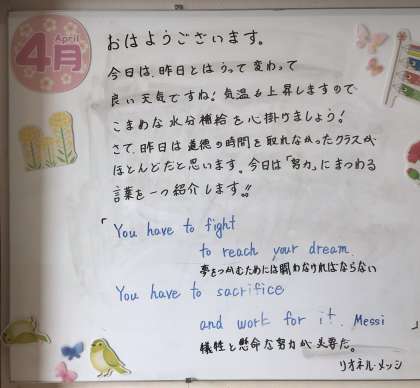 April
4月
おはようございます。
今日は、昨日とはうって変わって
良い天気ですね！気温も上昇しますので
こまめな水分補給を心掛けましょう！
さて、昨日は道徳の時間を取れなかったクラスが
ほとんどだと思います。今日は「努力」にまつわる
言葉を一つ紹介します!!
「You have to fight
to reach your dream.
夢をつかむためには闘わなければならない
You have to sacrifice
and work for it. Messi」
犠牲と懸命な努力が必要だ。
リオネル・メッシ